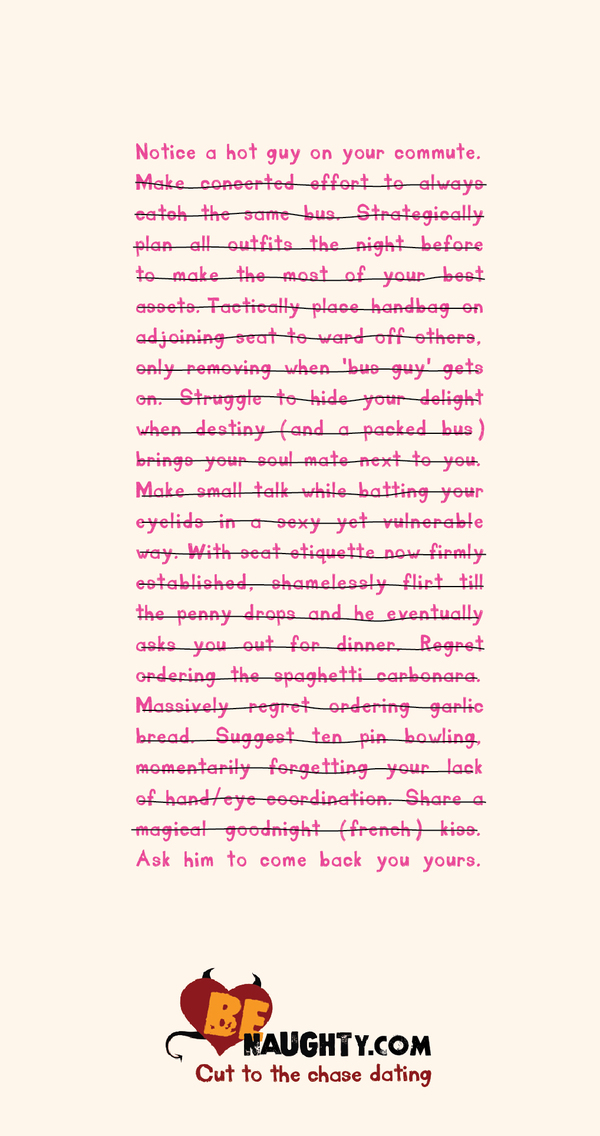 Notice a hot guy on your commute.
Make concerted effort to always
catch the same bus. Strategically
plan all outfits the night before
to make the most of your best
assets. Tactically place handbag on
adjoining seat to ward off others,
only removing when 'bus guy' gets
on. Struggle to hide your delight
when destiny (and a packed bus)
brings your soul mate next to you.
Make small talk while batting your
eyelids in a sexy yet vulnerable
way. With seat etiquette now firmly
established, shamelessly flirt till
the penny drops and he eventually
asks you out for dinner. Regret
ordering the spaghetti carbonara.
Massively regret ordering garlic
bread. Suggest ten pin bowling,
momentarily forgetting your lack
of hand/eye coordination. Share a
magical goodnight (french) kiss.
Ask him to come back you yours.
BE
NAUGHTY.COM
Cut to the chase dating